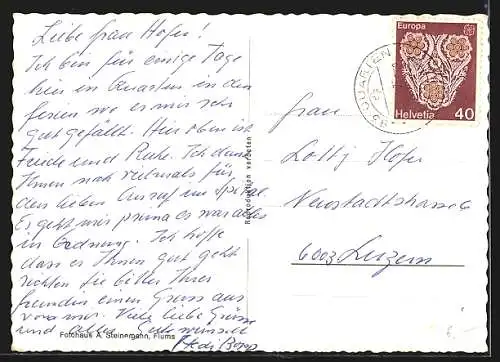 Liebe Frau Hofer!
Ich bin für einige Tage
hier in Quarten in den
Ferien wo es mir sehr
gut gefällt. Hier oben ist
Friede und Ruhe. Ich danke
Ihnen noch vielmals für
den lieben Anruf im Spital.
Es geht mir prima es war alles
in Ordnung. Ich hoffe
dass es Ihnen gut geht
richten Sie bitte Ihrer
Freundin einen Gruss aus
von mir. Viele liebe Grüsse
und alles Gute wünscht
Hedi
Fotohaus A. Steinemann, Flums
Reproduktion verboten
QUARTEN
Europa
Helvetia 40
Frau
Lotty Hofer
Neustadtstrasse 6
6003 Luzern